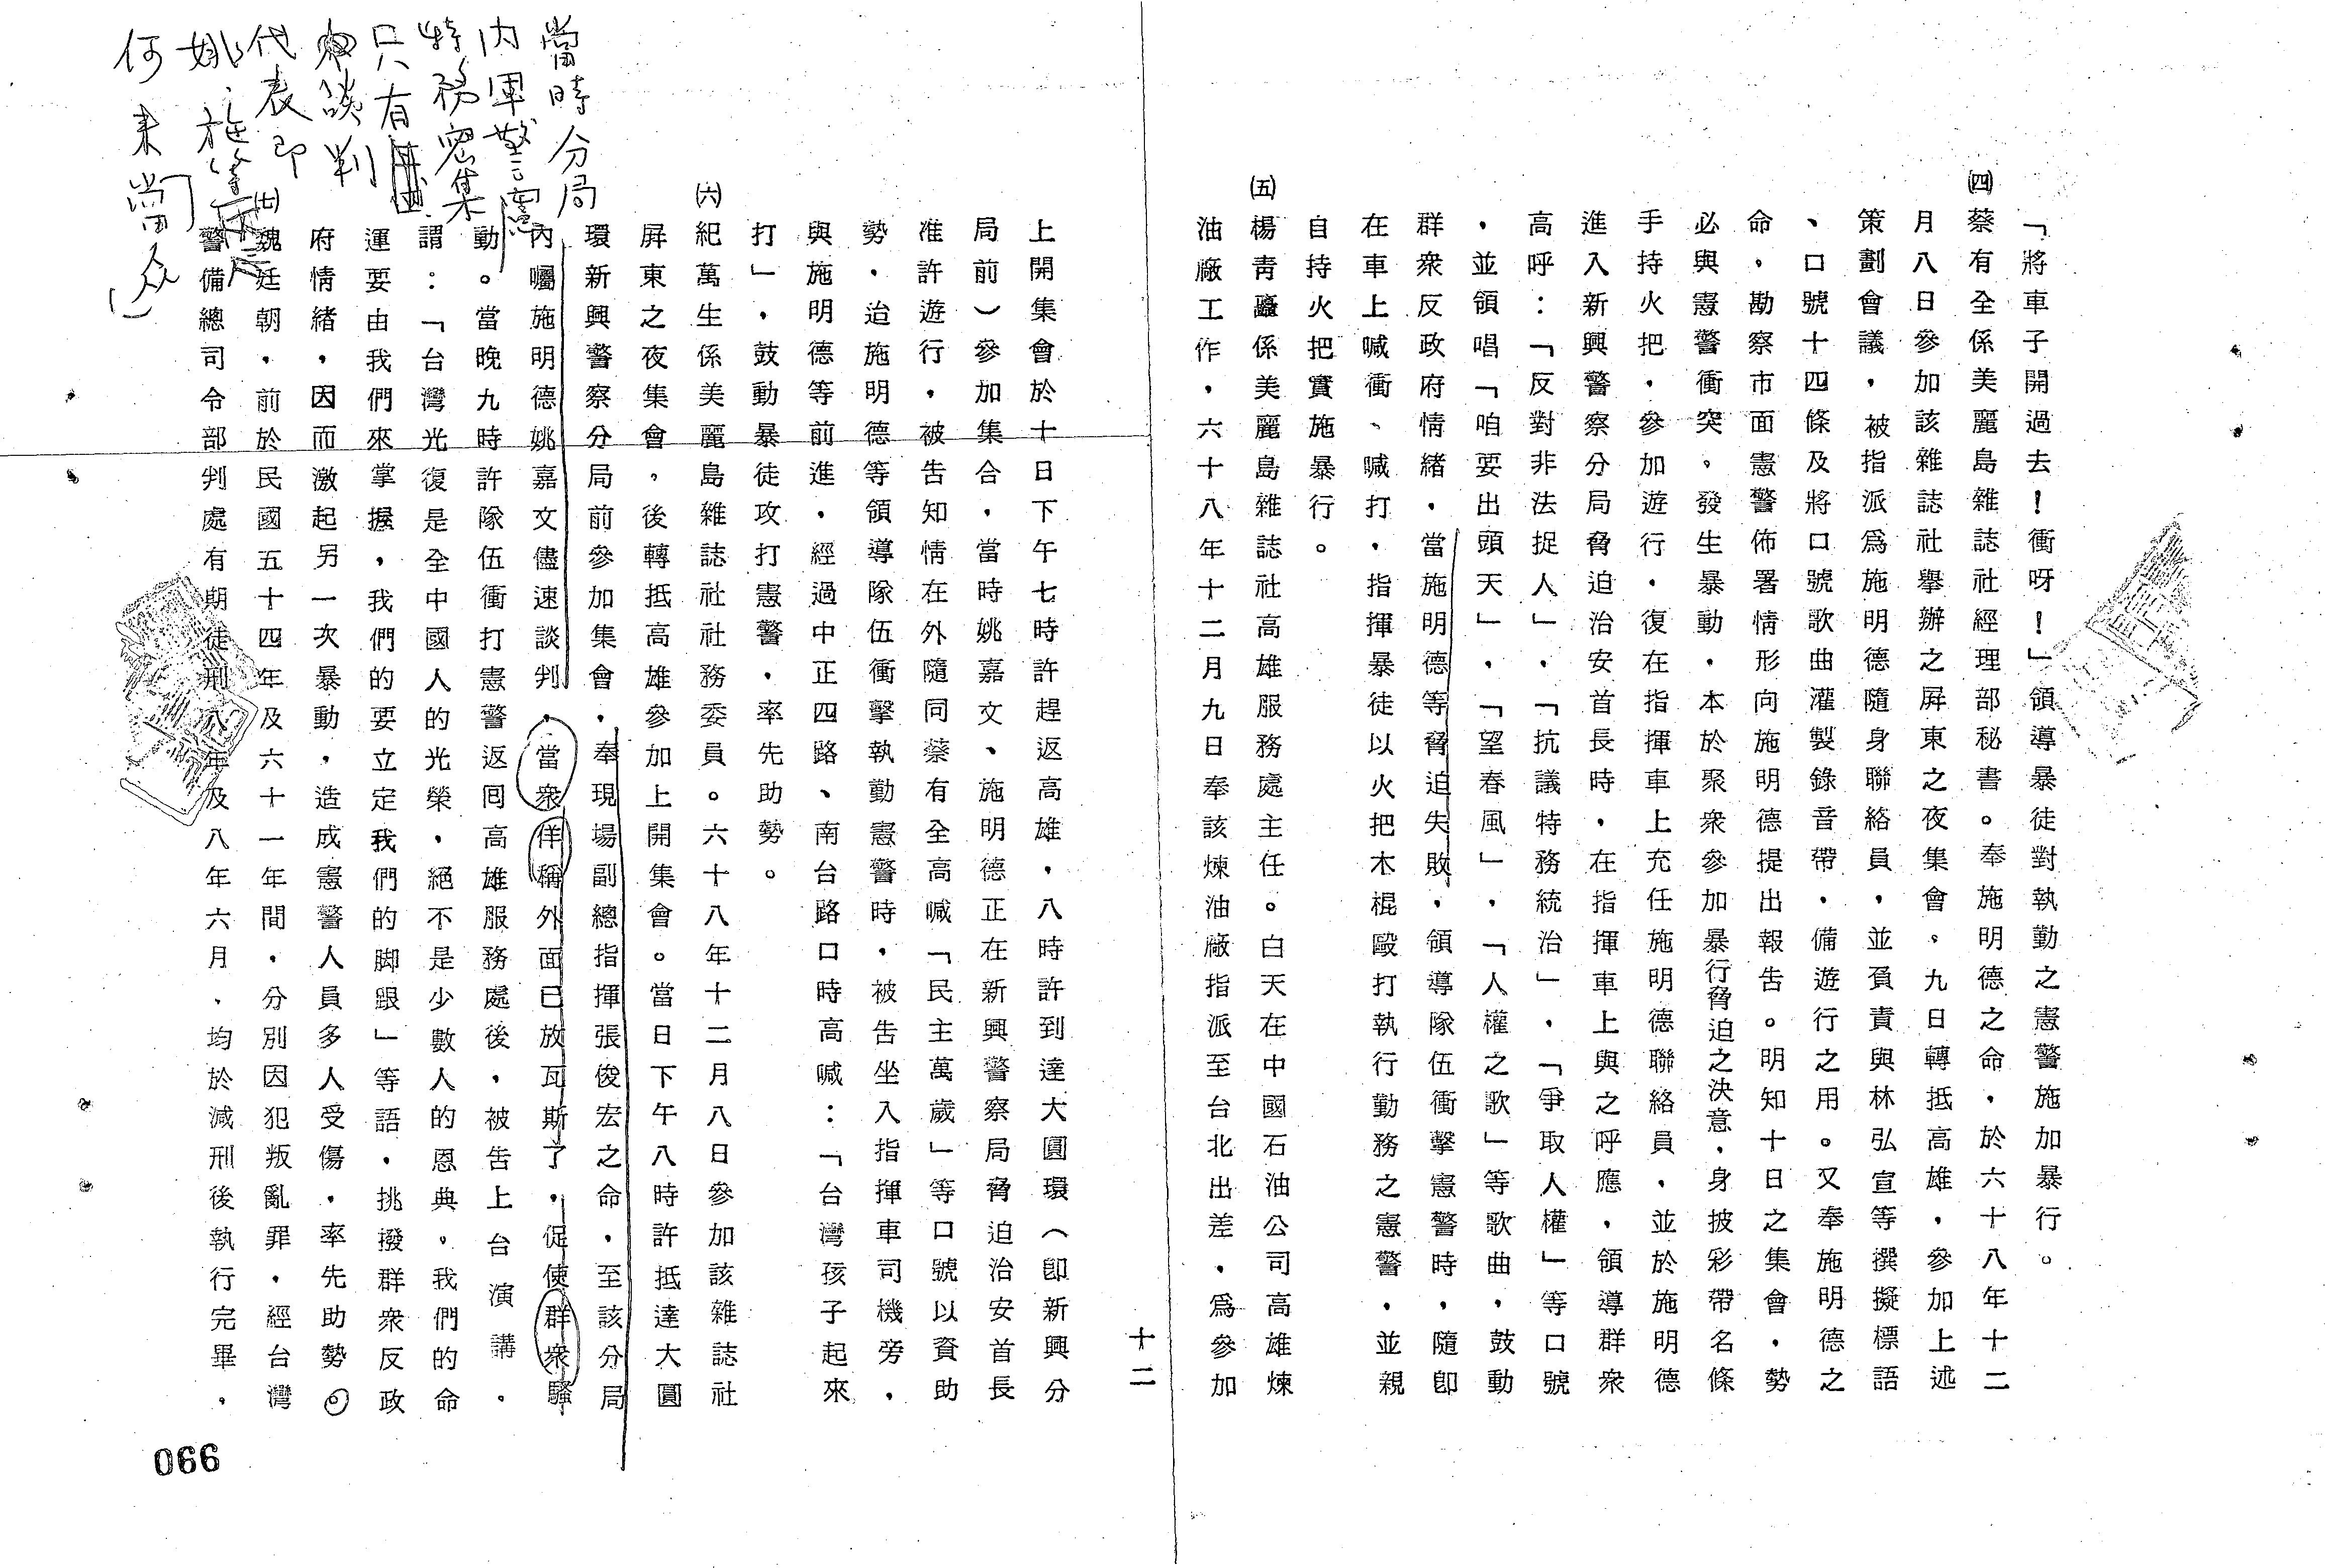 「將車子開過去！衝呀！」領導暴徒對執勤之憲警施加暴行。
㈣蔡有全係美麗島雜誌社經理部秘書。奉施明德之命，於六十八年十二
月八日參加該雜誌社舉辦之屏東之夜集會。九日轉抵高雄，參加上述
策劃會議，被指派為施明德隨身聯絡員，並負責與林弘宣等撰擬標語
、口號十四條及將口號歌曲灌製錄音帶，備遊行之用。又奉施明德之
命，勘察市面憲警佈署情形向施明德提出報告。明知十日之集會，勢
必與憲警衝突，發生暴動，本於聚衆參加暴行脅迫之決意，身披彩帶名條
手持火把，參加遊行，復在指揮車上充任施明德聯絡員，並於施明德
進入新興警察分局脅迫治安首長時，在指揮車上與之呼應，領導群衆
高呼：「反對非法捉人」，「抗議特務統治」，「爭取人權」等口號
，並領唱「咱要出頭天」，「望春風」，「人權之歌」等歌曲，鼓動
群衆反政府情緒，當施明德等脅迫失敗，領導隊伍衝擊憲警時，隨即
在車上喊衝、喊打，指揮暴徒以火把木棍毆打執行勤務之憲警，並親
自持火把實施暴行。
㈤楊青矗係美麗島雜誌社高雄服務處主任。白天在中國石油公司高雄煉
油廠工作，六十八年十二月九日奉該煉油廠指派至台北出差，為參加
十二
上開集會於十日下午七時許趕返高雄，八時許到達大圓環（即新興分
局前）參加集合，當時姚嘉文、施明德正在新興警察局脅迫治安首長
准許遊行，被告知情在外隨同蔡有全高喊「民主萬歲」等口號以資助
勢，迨施明德等領導隊伍衝擊執勤憲警時，被告坐入指揮車司機旁，
與施明德等前進，經過中正四路、南台路口時高喊：「台灣孩子起來
打」，鼓動暴徒攻打憲警，率先助勢。
㈥紀萬生係美麗島雜誌社社務委員。六十八年十二月八日參加該雜誌社
屏東之夜集會。後轉抵高雄參加上開集會。當日下午八時許抵達大圓
環新興警察分局前參加集會，奉現場副總指揮張俊宏之命，至該分局
內囑施明德姚嘉文儘速談判，當衆佯稱外面已放瓦斯了，促使群衆騷
動。當晚九時許隊伍衝打憲警返回高雄服務處後，被告上台演講。
謂：「台灣光復是全中國人的光榮，絕不是少數人的恩典。我們的命
運要由我們來掌握，我們的要立定我們的脚跟」等語，挑撥群衆反政
府情緒，因而激起另一次暴動，造成憲警人員多人受傷，率先助勢。
㈦魏廷朝，前於民國五十四年及六十一年間，分別因犯叛亂罪，經台灣
警備總司令部判處有期徒刑八年及八年六月，均於減刑後執行完畢，
當時分局
內軍警憲
特務密集
只有
談判
代表即
姚、施等
何來「當
衆」
066